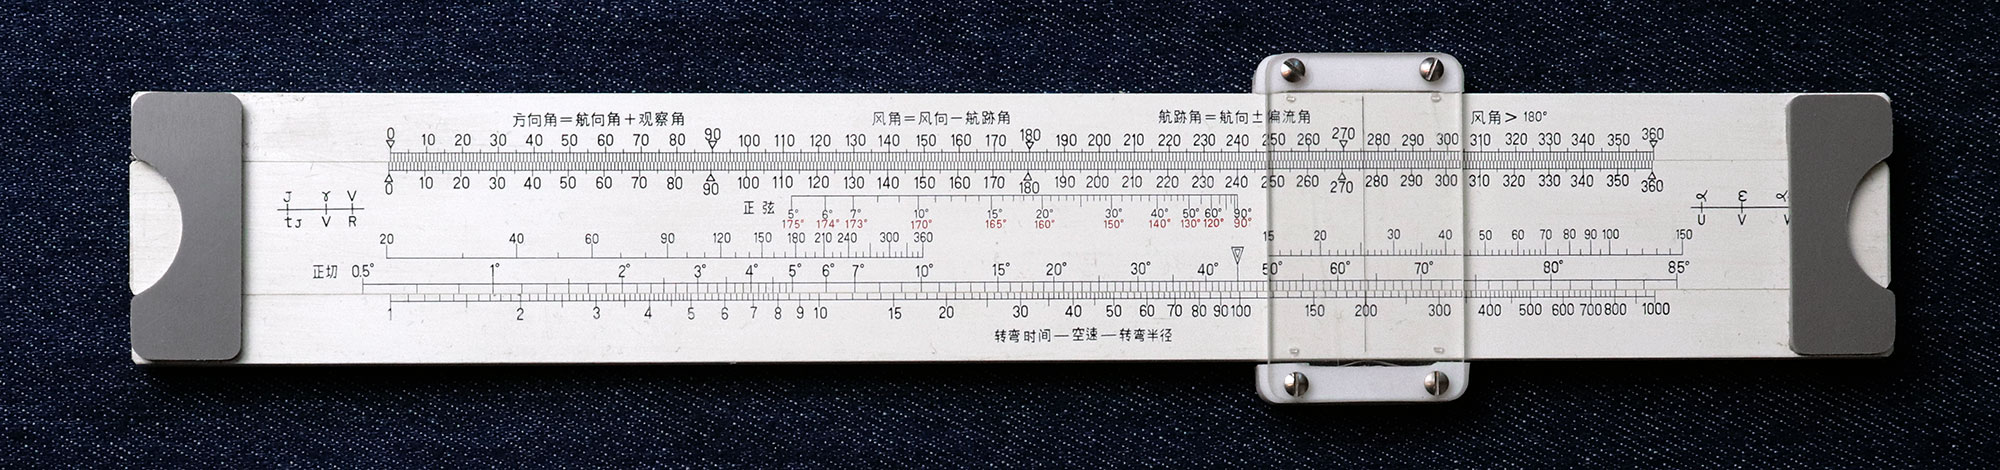 方向角=航向角+观察角 风角=风向-航跡角 航跡角=航向±偏流角 风角>180°
0 10 20 30 40 50 60 70 80 90 100 110 120 130 140 150 160 170 180 190 200 210 220 230 240 250 260 270 280 290 300 310 320 330 340 350 360
0 10 20 30 40 50 60 70 80 90 100 110 120 130 140 150 160 170 180 190 200 210 220 230 240 250 260 270 280 290 300 310 320 330 340 350 360
J γ V α ε α
tJ V R U V V
正弦 5° 6° 7° 10° 15° 20° 30° 40° 50° 60° 90°
175° 174° 173° 170° 165° 160° 150° 140° 130° 120° 90°
20 40 60 90 120 150 180 210 240 300 360 15 20 30 40 50 60 70 80 90 100 150
正切 0.5° 1° 2° 3° 4° 5° 6° 7° 10° 15° 20° 30° 40° 50° 60° 70° 80° 85°
1 2 3 4 5 6 7 8 9 10 15 20 30 40 50 60 70 80 90 100 150 200 300 400 500 600 700 800 1000
转弯时间—空速—转弯半径